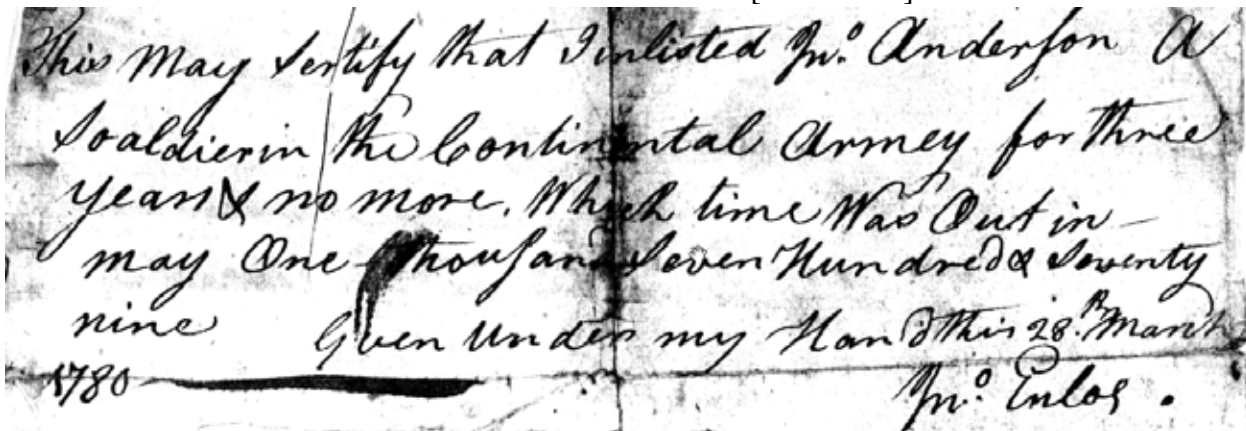 This May Sertify that I inlisted Jno. Anderson A
Soaldier in the Continental Armey for three
years & no more. Which time Was Out in
may One thousand Seven Hundred & Seventy
nine Given Under my Hand this 28th March
1780
Jno. Enlos.